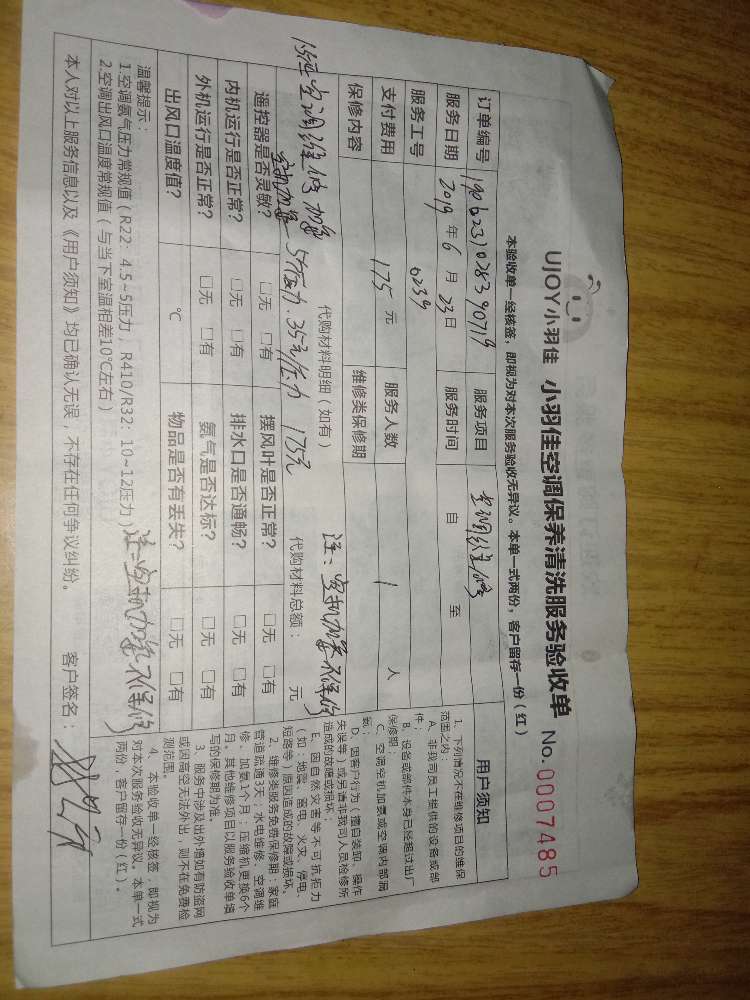 UJOY小羽佳 小羽佳空调保养清洗服务验收单 No. 0007485
本验收单一经核签，即视为对本次服务验收无异议。本单一式两份，客户留存一份（红）
订单编号 服务项目 空调维修
服务日期 2019 年 6 月 23 日 服务时间 自 至
服务工号 6239
支付费用 175 元 服务人数 1 人
保修内容 维修类保修期
注：空机加氨不保修
代购材料明细（如有） 代购材料总额： 元
1台 空调维修 加氨
空机加氨 5个压力. 35元/压力 175元
遥控器是否灵敏？ □无 □有 摆风叶是否正常？ □无 □有
内机运行是否正常？ □无 □有 排水口是否通畅？ □无 □有
外机运行是否正常？ □无 □有 氨气是否达标？ □无 □有
出风口温度值？ ℃ 物品是否有丢失？ □无 □有
温馨提示：
1.空调氨气压力常规值（R22：4.5~5压力，R410/R32：10~12压力）
注：空机加氨不保修
2.空调出风口温度常规值（与当下室温相差10℃左右）
本人对以上服务信息以及《用户须知》均已确认无误，不存在任何争议纠纷。 客户签名：
用户须知
1、下列情况不在维修项目的维保
范围之内：
A、非我司员工提供的设备或部
件；
B、设备或部件本身已经超过出厂
保修期；
C、空调空机加氨或空调内部漏
氨；
D、因客户行为（擅自装卸、操作
失误等）或另请非我司人员检修所
造成的故障或损坏；
E、因自然灾害等不可抗拒力
（如：地震、雷电、火灾、停电、
短路等）原因造成的故障或损坏。
2、维修类服务免费保修期：家庭
管道疏通3天；水电维修、空调维
修、加氨1个月；压缩机更换6个
月。其他维修项目以服务验收单填
写的保修期为准。
3、服务中涉及出外墙如有防盗网
或因高空无法外出，则不在免费检
测范围。
4、本验收单一经核签，即视为
对本次服务验收无异议。本单一式
两份，客户留存一份（红）。